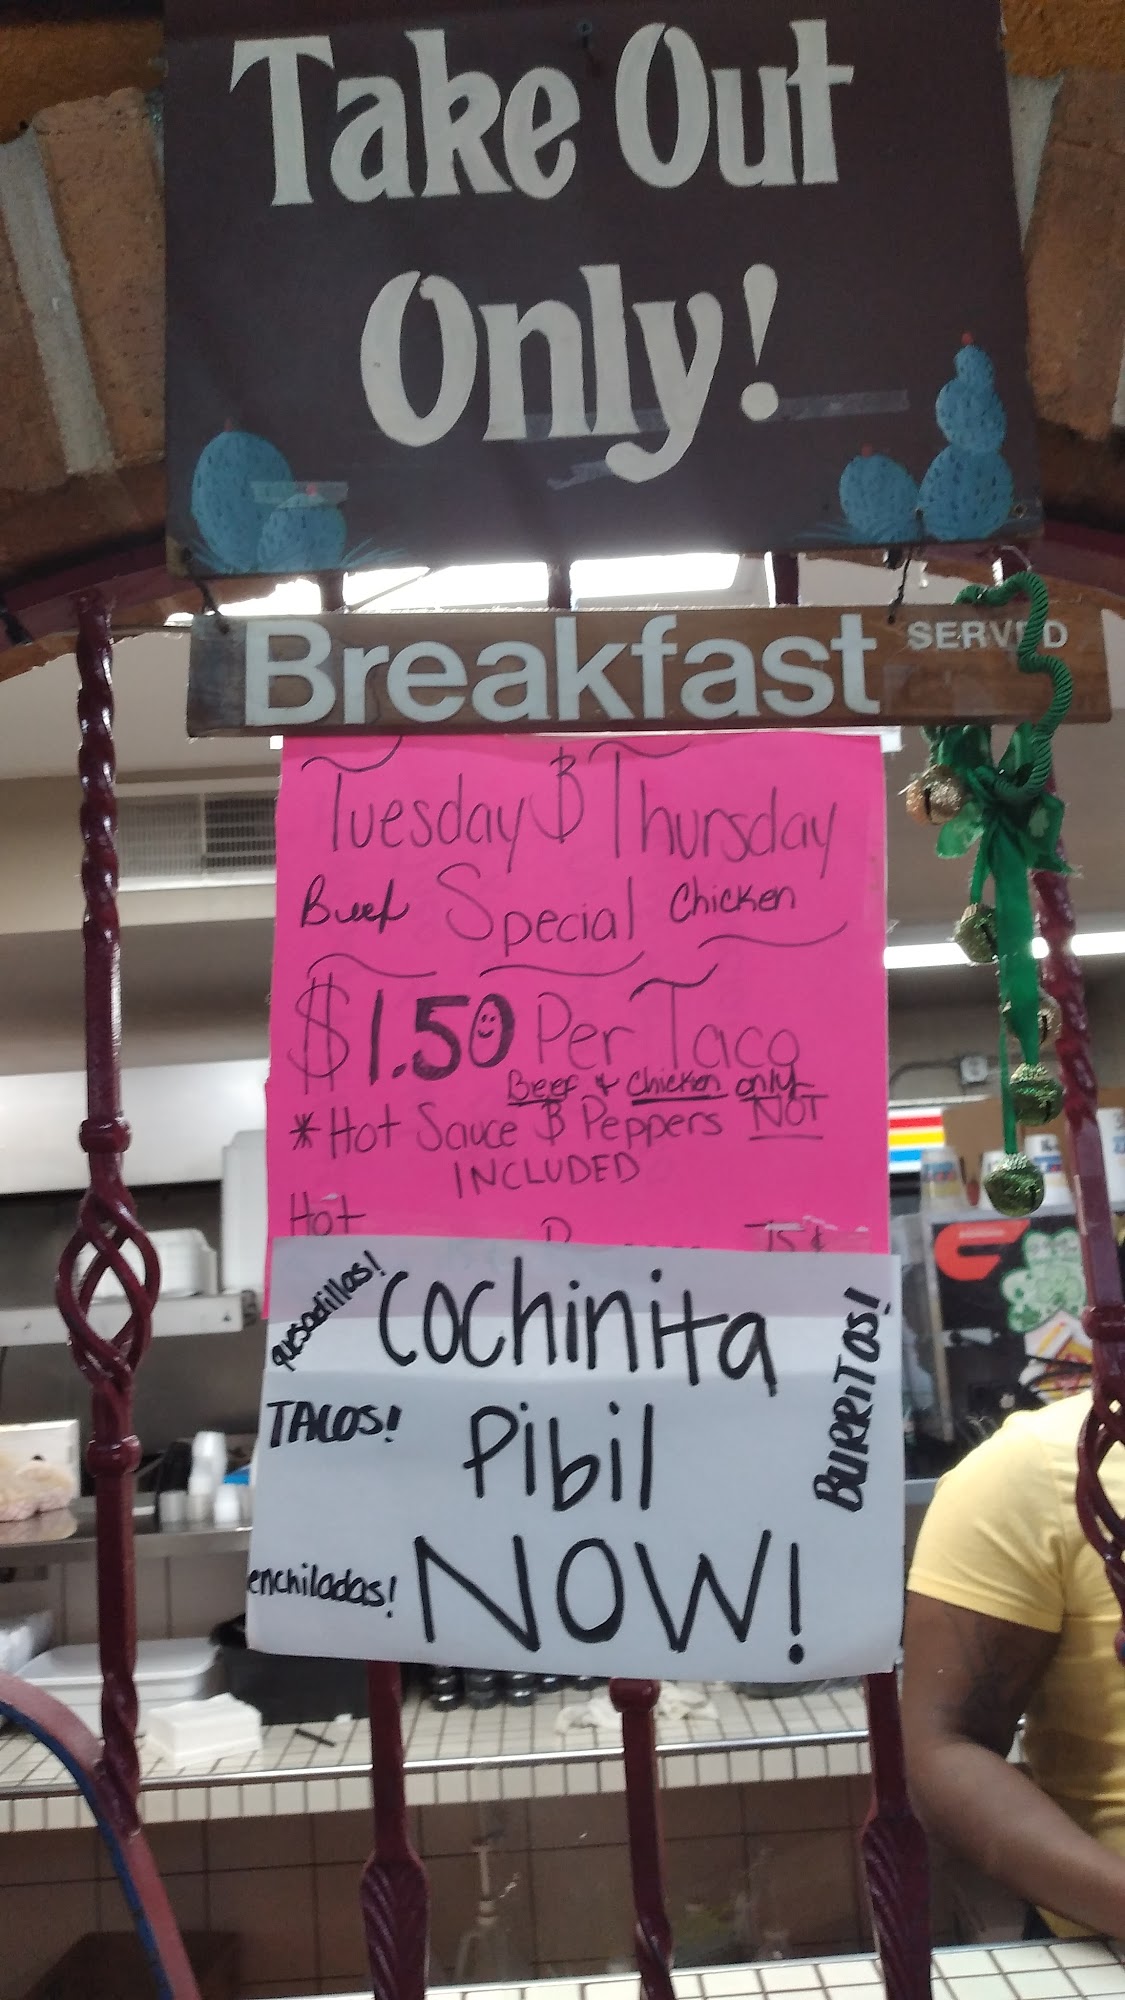 Take Out
Only!
Breakfast SERVED
Tuesday & Thursday
Beef Special Chicken
$1.50 Per Taco
Beef & Chicken only
*Hot Sauce & Peppers NOT
INCLUDED
Hot 75¢
quesadillas! Cochinita
TACOS! Pibil BURRITOS!
enchiladas! NOW!